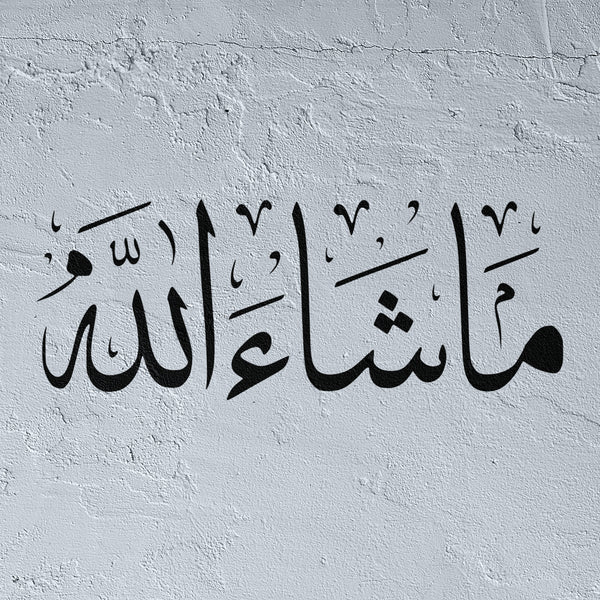 مَا شَاءَ اللَّهُ